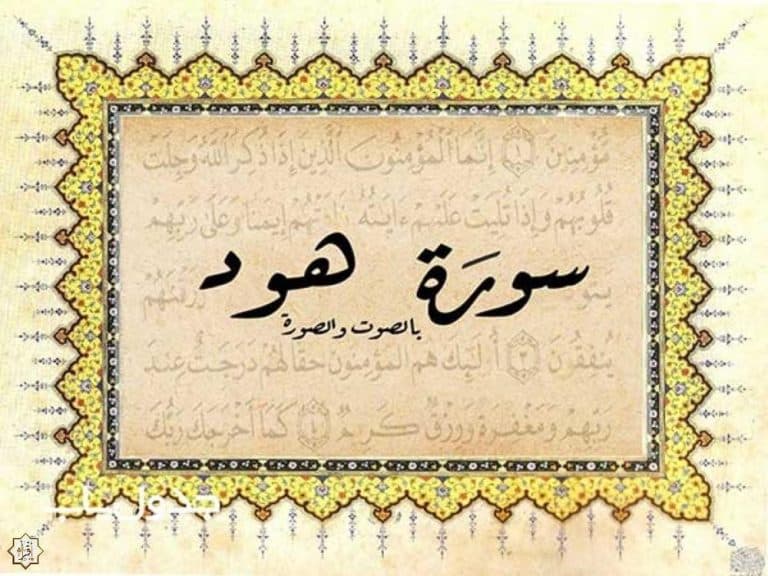 مُّؤْمِنِينَ ۝١ إِنَّمَا ٱلْمُؤْمِنُونَ ٱلَّذِينَ إِذَا ذُكِرَ ٱللَّهُ وَجِلَتْ
قُلُوبُهُمْ وَإِذَا تُلِيَتْ عَلَيْهِمْ ءَايَٰتُهُۥ زَادَتْهُمْ إِيمَٰنًا وَعَلَىٰ رَبِّهِمْ
سورَة هود
بالصوت والصورة
يُنفِقُونَ ۝٣ أُو۟لَٰٓئِكَ هُمُ ٱلْمُؤْمِنُونَ حَقًّا لَّهُمْ دَرَجَٰتٌ عِندَ
رَبِّهِمْ وَمَغْفِرَةٌ وَرِزْقٌ كَرِيمٌ ۝٤ كَمَآ أَخْرَجَكَ رَبُّكَ
جدول یاب